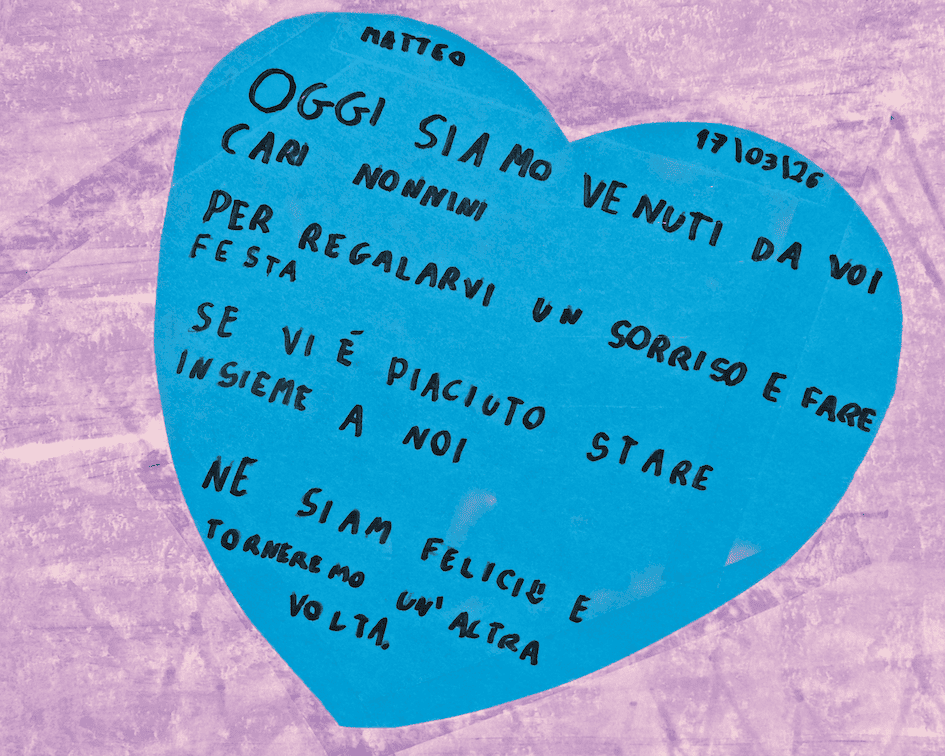 MATTEO
17\03\26
OGGI SIAMO VENUTI DA VOI
CARI NONNINI
PER REGALARVI UN SORRISO E FARE
FESTA
SE VI É PIACIUTO STARE
INSIEME A NOI
NE SIAM FELICI E
TORNEREMO UN'ALTRA
VOLTA.